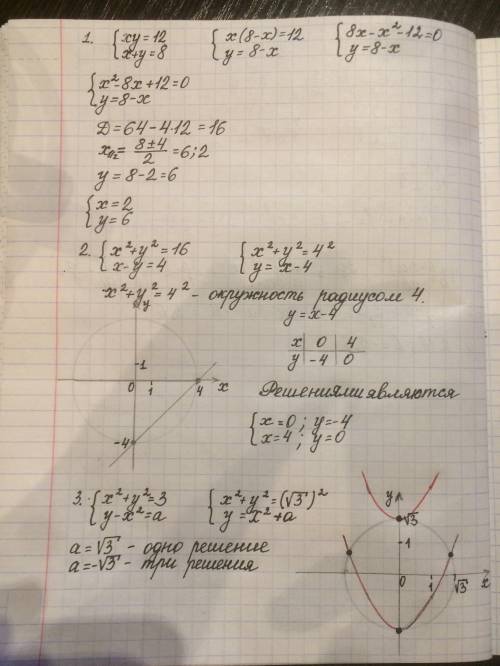 1. { xy=12 x+y=8 { x(8-x)=12 y=8-x { 8x-x²-12=0 y=8-x
{ x²-8x+12=0 y=8-x
D=64-4·12=16
x₁/₂= (8±4)/2 =6;2
y=8-2=6
{ x=2 y=6
2. { x²+y²=16 x-y=4 { x²+y²=4² y=x-4
x²+y²=4² - окружность радиусом 4.
y=x-4
x 0 4
y -4 0
y
1
0 1 4 x
-4
Решениями являются
{ x=0; y=-4
x=4; y=0
3. { x²+y²=3 y-x²=a { x²+y²=(√3)² y=x²+a
a=√3 - одно решение
a=-√3 - три решения
y
√3
1
0 1 √3 x